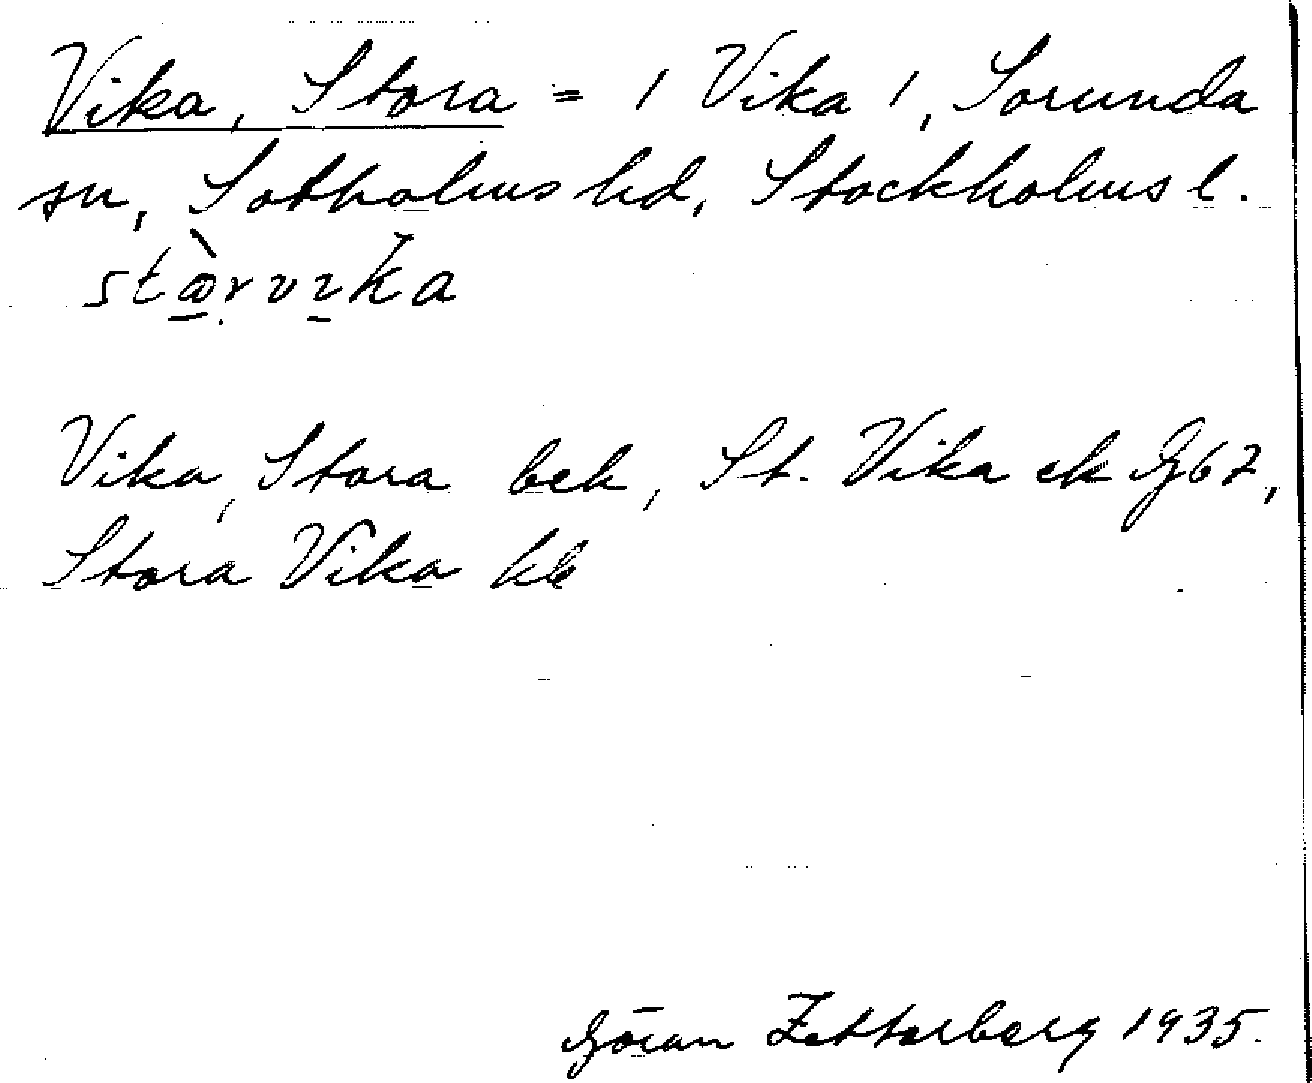 Vika, Stora = / Vika /, Sorunda
sn, Sotholms hd, Stockholms l.
Vika, Stora bek, St. Vika ek G67,
Stora Vika kb
Göran Zetterberg 1935.